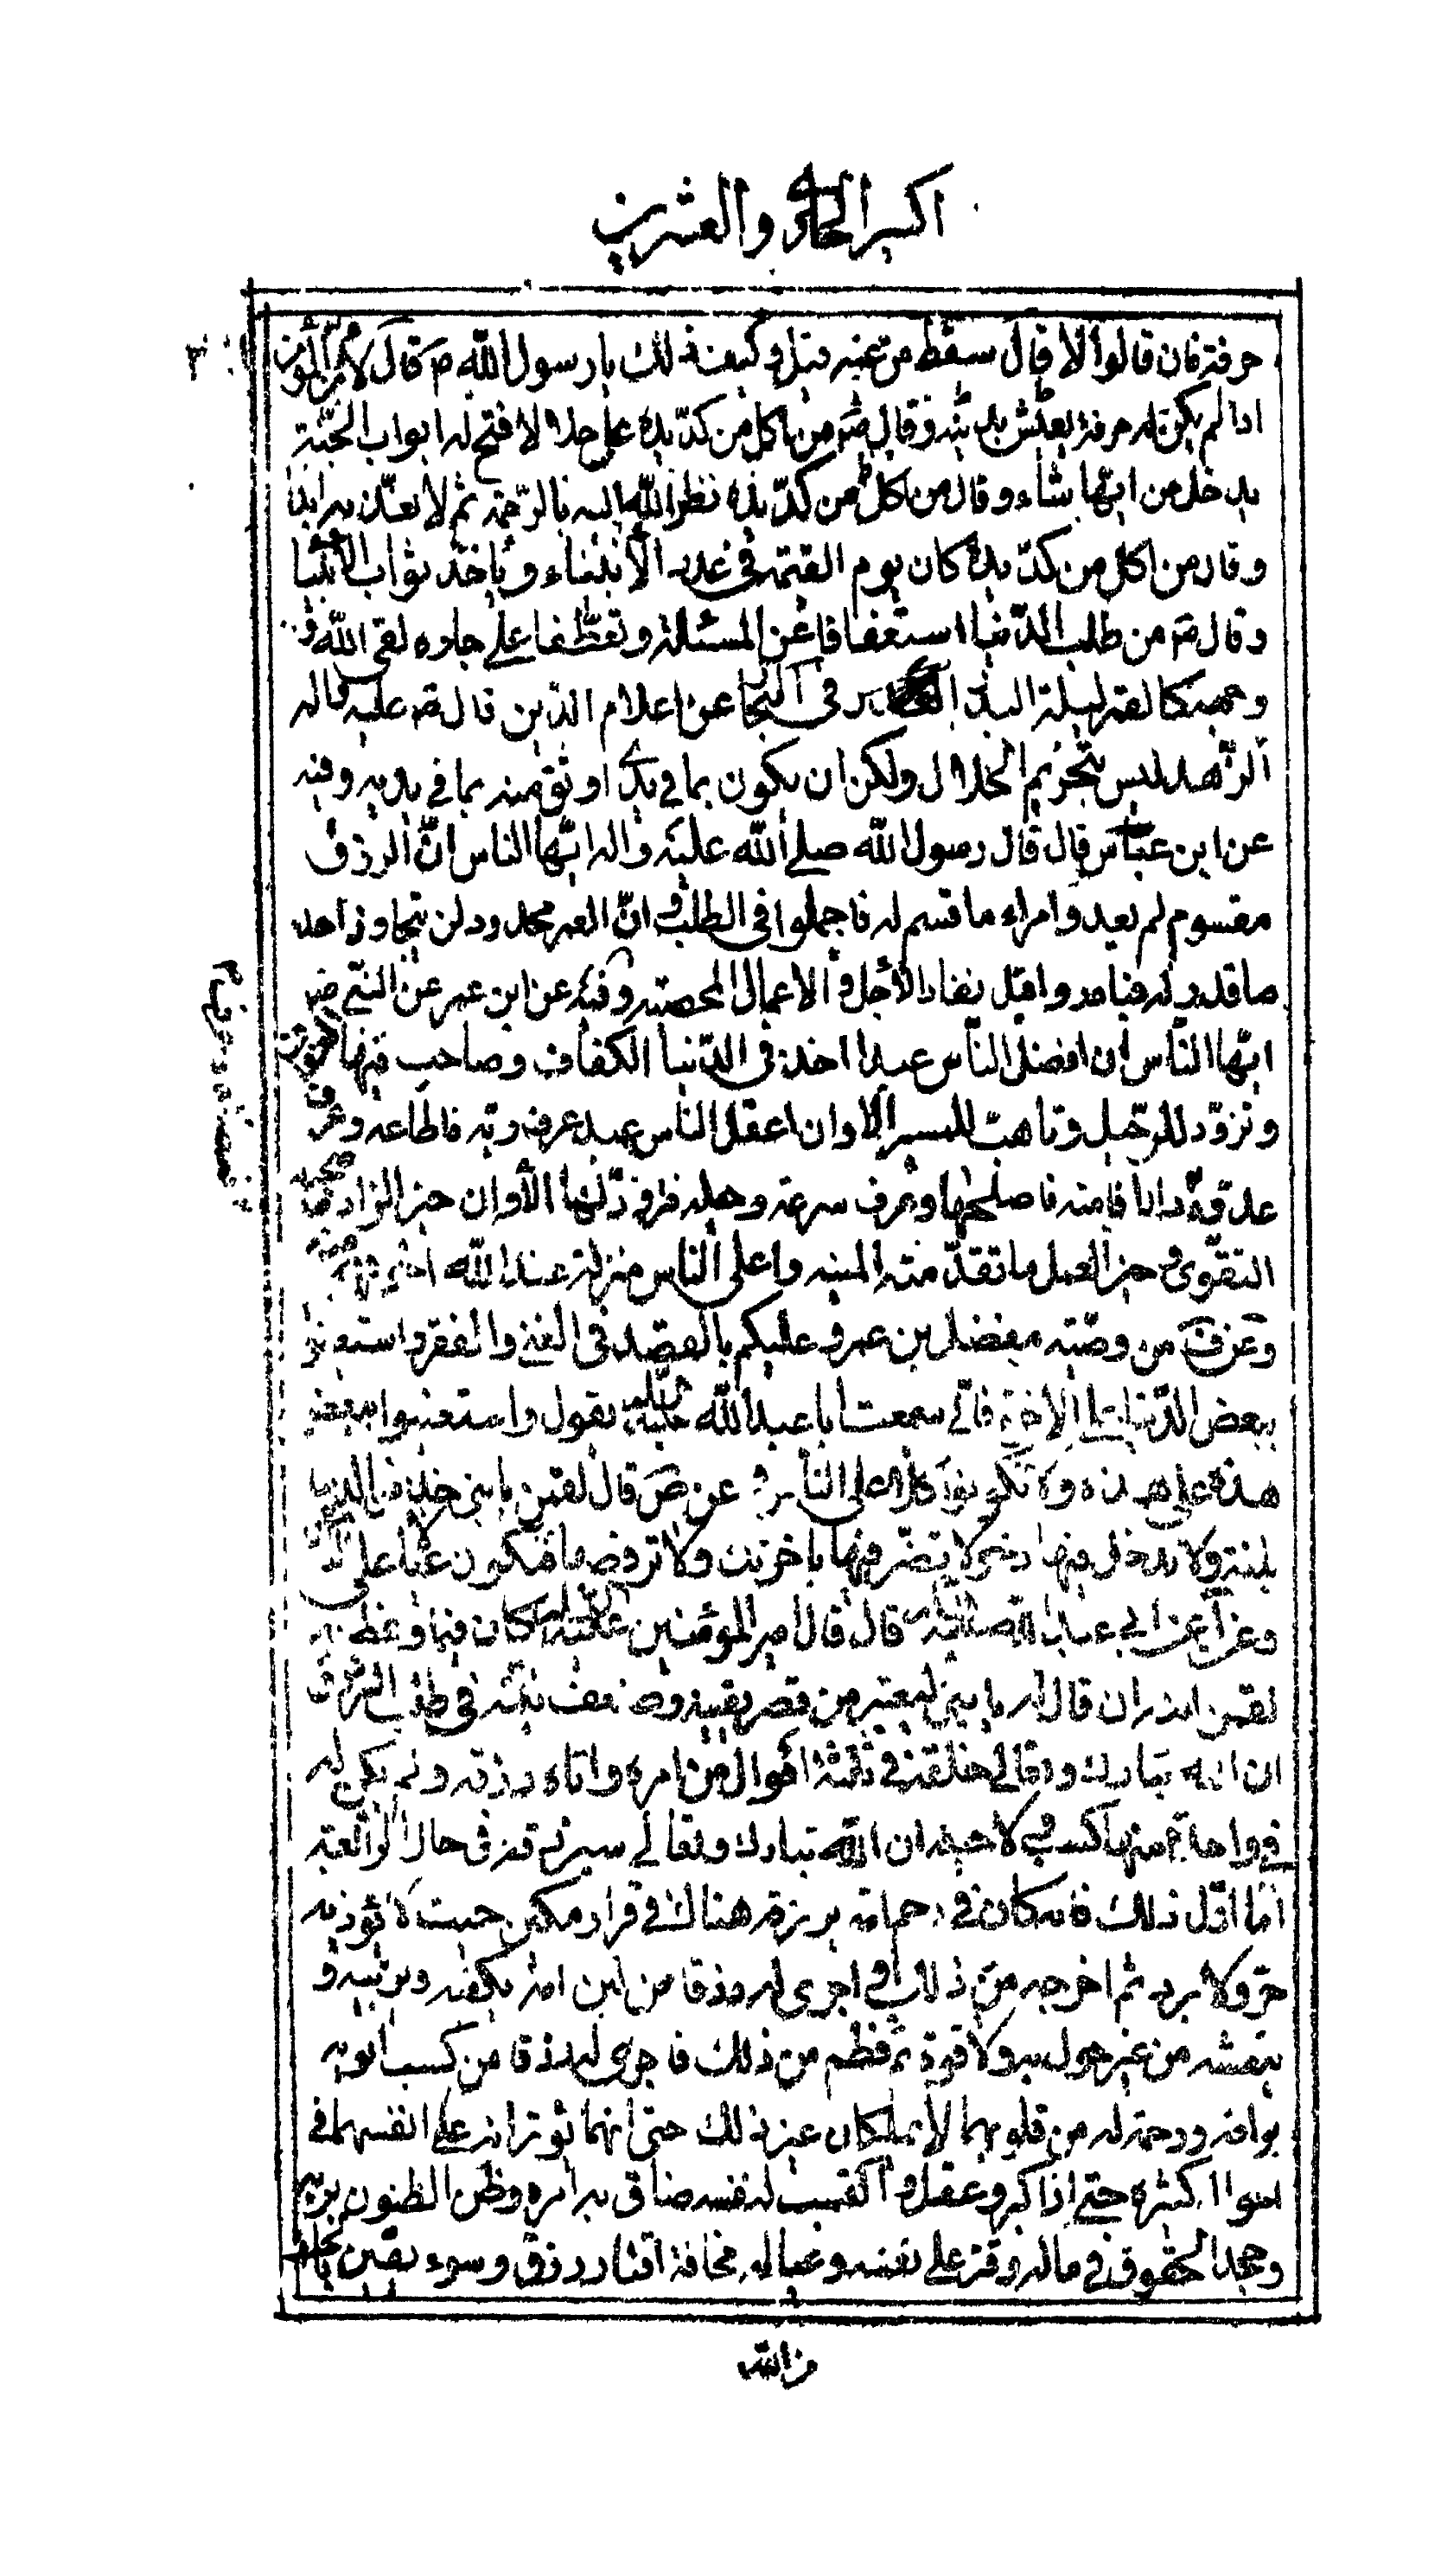 اكسير الحادى والعشرين
حرفة فان قالوا لا قال سقط من عينى قيل وكيف ذلك يا رسول الله ص قال لان المؤمن
اذا لم يكن له حرفة يعيش بدينه وقال ص من ياكل من كدّ يده حلالا فتح له ابواب الجنّة
يدخل من ايّها يشاء وقال من اكل من كدّ يده نظر الله اليه بالرّحمة ثم لا يعذّبه ابدا
وقال من اكل من كدّ يده كان يوم القيمة فى عداد الانبياء ويأخذ ثواب الانبيا
وقال ص من طلب الدّنيا استعفافا عن المسئلة وتعطّفا على جاره لقى الله و
وجهه كالقمر ليلة البدر فى البحار عن اعلام الدّين قال ص عليه واله
الزّهد ليس بتحريم الحلال ولكن ان يكون بما فى يدى الله اوثق منه بما فى يديه وفيه
عن ابن عبّاس قال قال رسول الله صلى الله عليه واله ايّها الناس انّ الرزق
مقسوم لم يعد وامرء ما قسم له فاجملوا فى الطلب و انّ العمر محدود لن يتجاوز احد
ما قدر له فبادروا قبل نفاد الاجل و الاعمال المحصية وفيه عن ابن عمر عن النبى ص
ايّها النّاس ان افضل النّاس عبدا اخذ فى الدّنيا الكفاف وصاحب فيها
وتزوّد للرّحيل وتاهب للمسير الا وان اعقل الناس عبد عرف ربّه فاطاعه وعرف
عدوّه فعصاه وعرف دار اقامته فاصلحها وعرف سرعة رحيله فتزوّد لها الا وان خير الزاد ما صحبه
التقوى و خير العمل ما تقدّمته النية واعلى الناس منزلة عند الله اخوفهم منه
وعن ف من وصيّة مفضل بن عمرو عليكم بالقصد فى الغنى والفقر واستعينوا
ببعض الدّنيا على الاخرة فانّى سمعت ابا عبد الله عليه السلام يقول واستعينوا ببعض
هذه على هذه ولا تكونوا كلّا على الناس و عن ص قال لقمن يا بنى خذ من الدنيا
بلغة ولا تدخل فيها دخولا تضرّ فيها باخرتك ولا ترفضها فتكون عيالا على
وعن ابى عبد الله عليه السلام قال قال امير المؤمنين عليه السلام كان فيما وعظ به
لقمن ابنه ان قال له يا بنى ليعتبر من قصر يقينه وضعفت نيّته فى طلب الرزق
ان الله تبارك وتعالى خلقه فى ثلثة احوال من امره واتاه رزقه ولم يكن له
فى واحدة منها كسب ولا حيلة ان الله تبارك وتعالى سيرزقه فى حال الرّابعة
امّا اوّل ذلك فانه كان فى رحم امّه يرزقه هناك فى قرار مكين حيث لا يؤذيه
حرّ ولا برد ثم اخرجه من ذلك و اجرى له رزقا من لبن امّه يكفيه ويربّيه و
ينعشه من غير حول به ولا قوة ثم فطم من ذلك فاجرى له رزقا من كسب ابويه
برافة ورحمة له من قلوبهما لا يملكان غير ذلك حتى انهما يؤثرانه على انفسهما فى
احوال كثيرة حتى اذا كبر وعقل و اكتسب لنفسه ضاق به امره وظن الظنون بربّه
وجحد الحقوق فى ماله وقتر على نفسه وعياله مخافة اقتار رزق وسوء يقين بالخلف
من الله